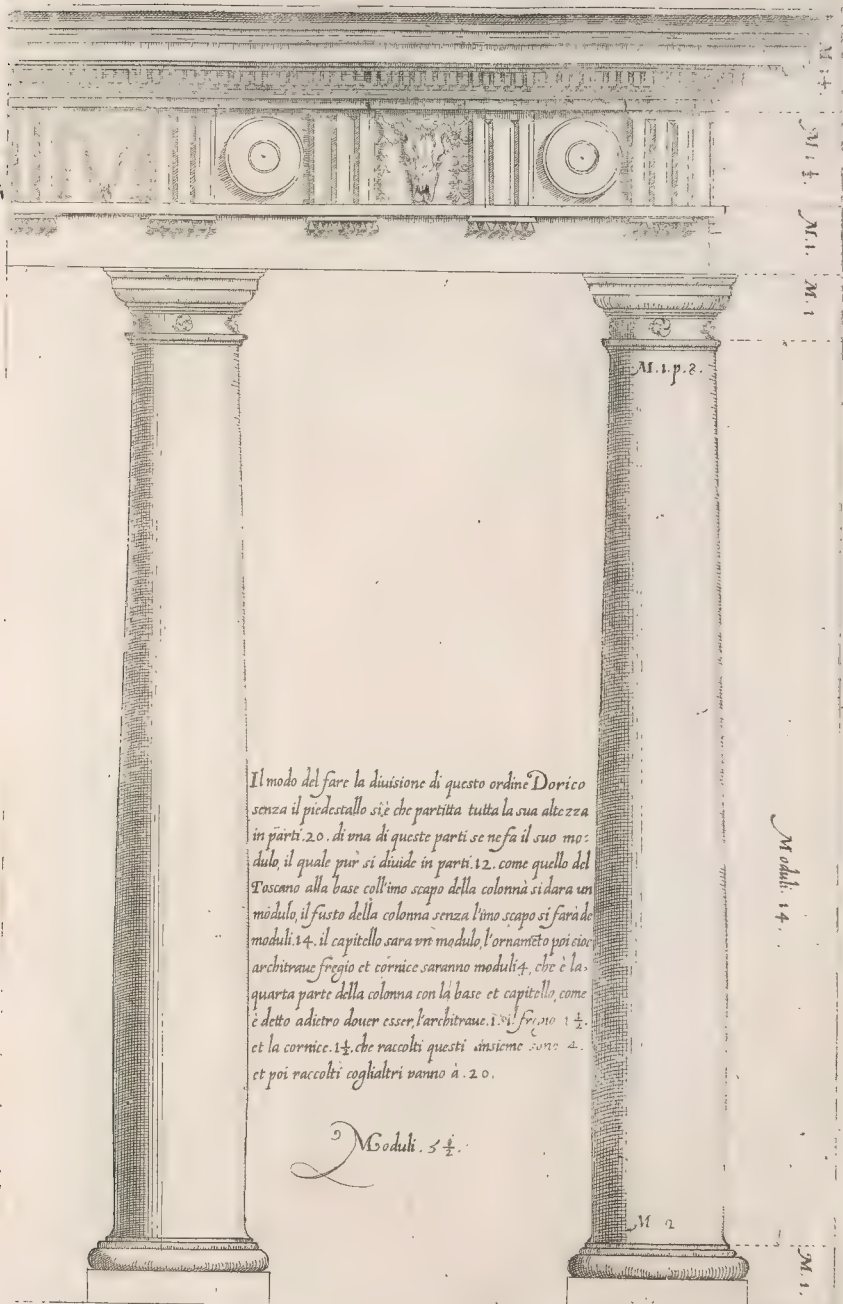 M. 1 1/2.
M. 1 1/2.
M. 1.
M. 1
M. 1. p. 8.
Il modo del fare la diuisione di questo ordine Dorico
senza il piedestallo si è che partitta tutta la sua altezza
in parti .20. di vna di queste parti se ne fa il suo mo:
dulo, il quale pur si diuide in parti .12. come quello del
Toscano alla base coll'imo scapo della colonna si dara un
modulo, il fusto della colonna senza l'imo scapo si farà de
moduli .14. il capitello sara vn modulo, l'ornamēto poi cioe
architraue fregio et cornice saranno moduli 4, che è la
quarta parte della colonna con la base et capitello, come
è detto adietro douer esser, l'architraue .1. il fregio 1 1/2.
et la cornice .1 1/2. che raccolti questi insieme sono 4.
et poi raccolti coglialtri vanno à .20.
Moduli . 5 1/2.
Moduli. 14.
M 2
M. 1.